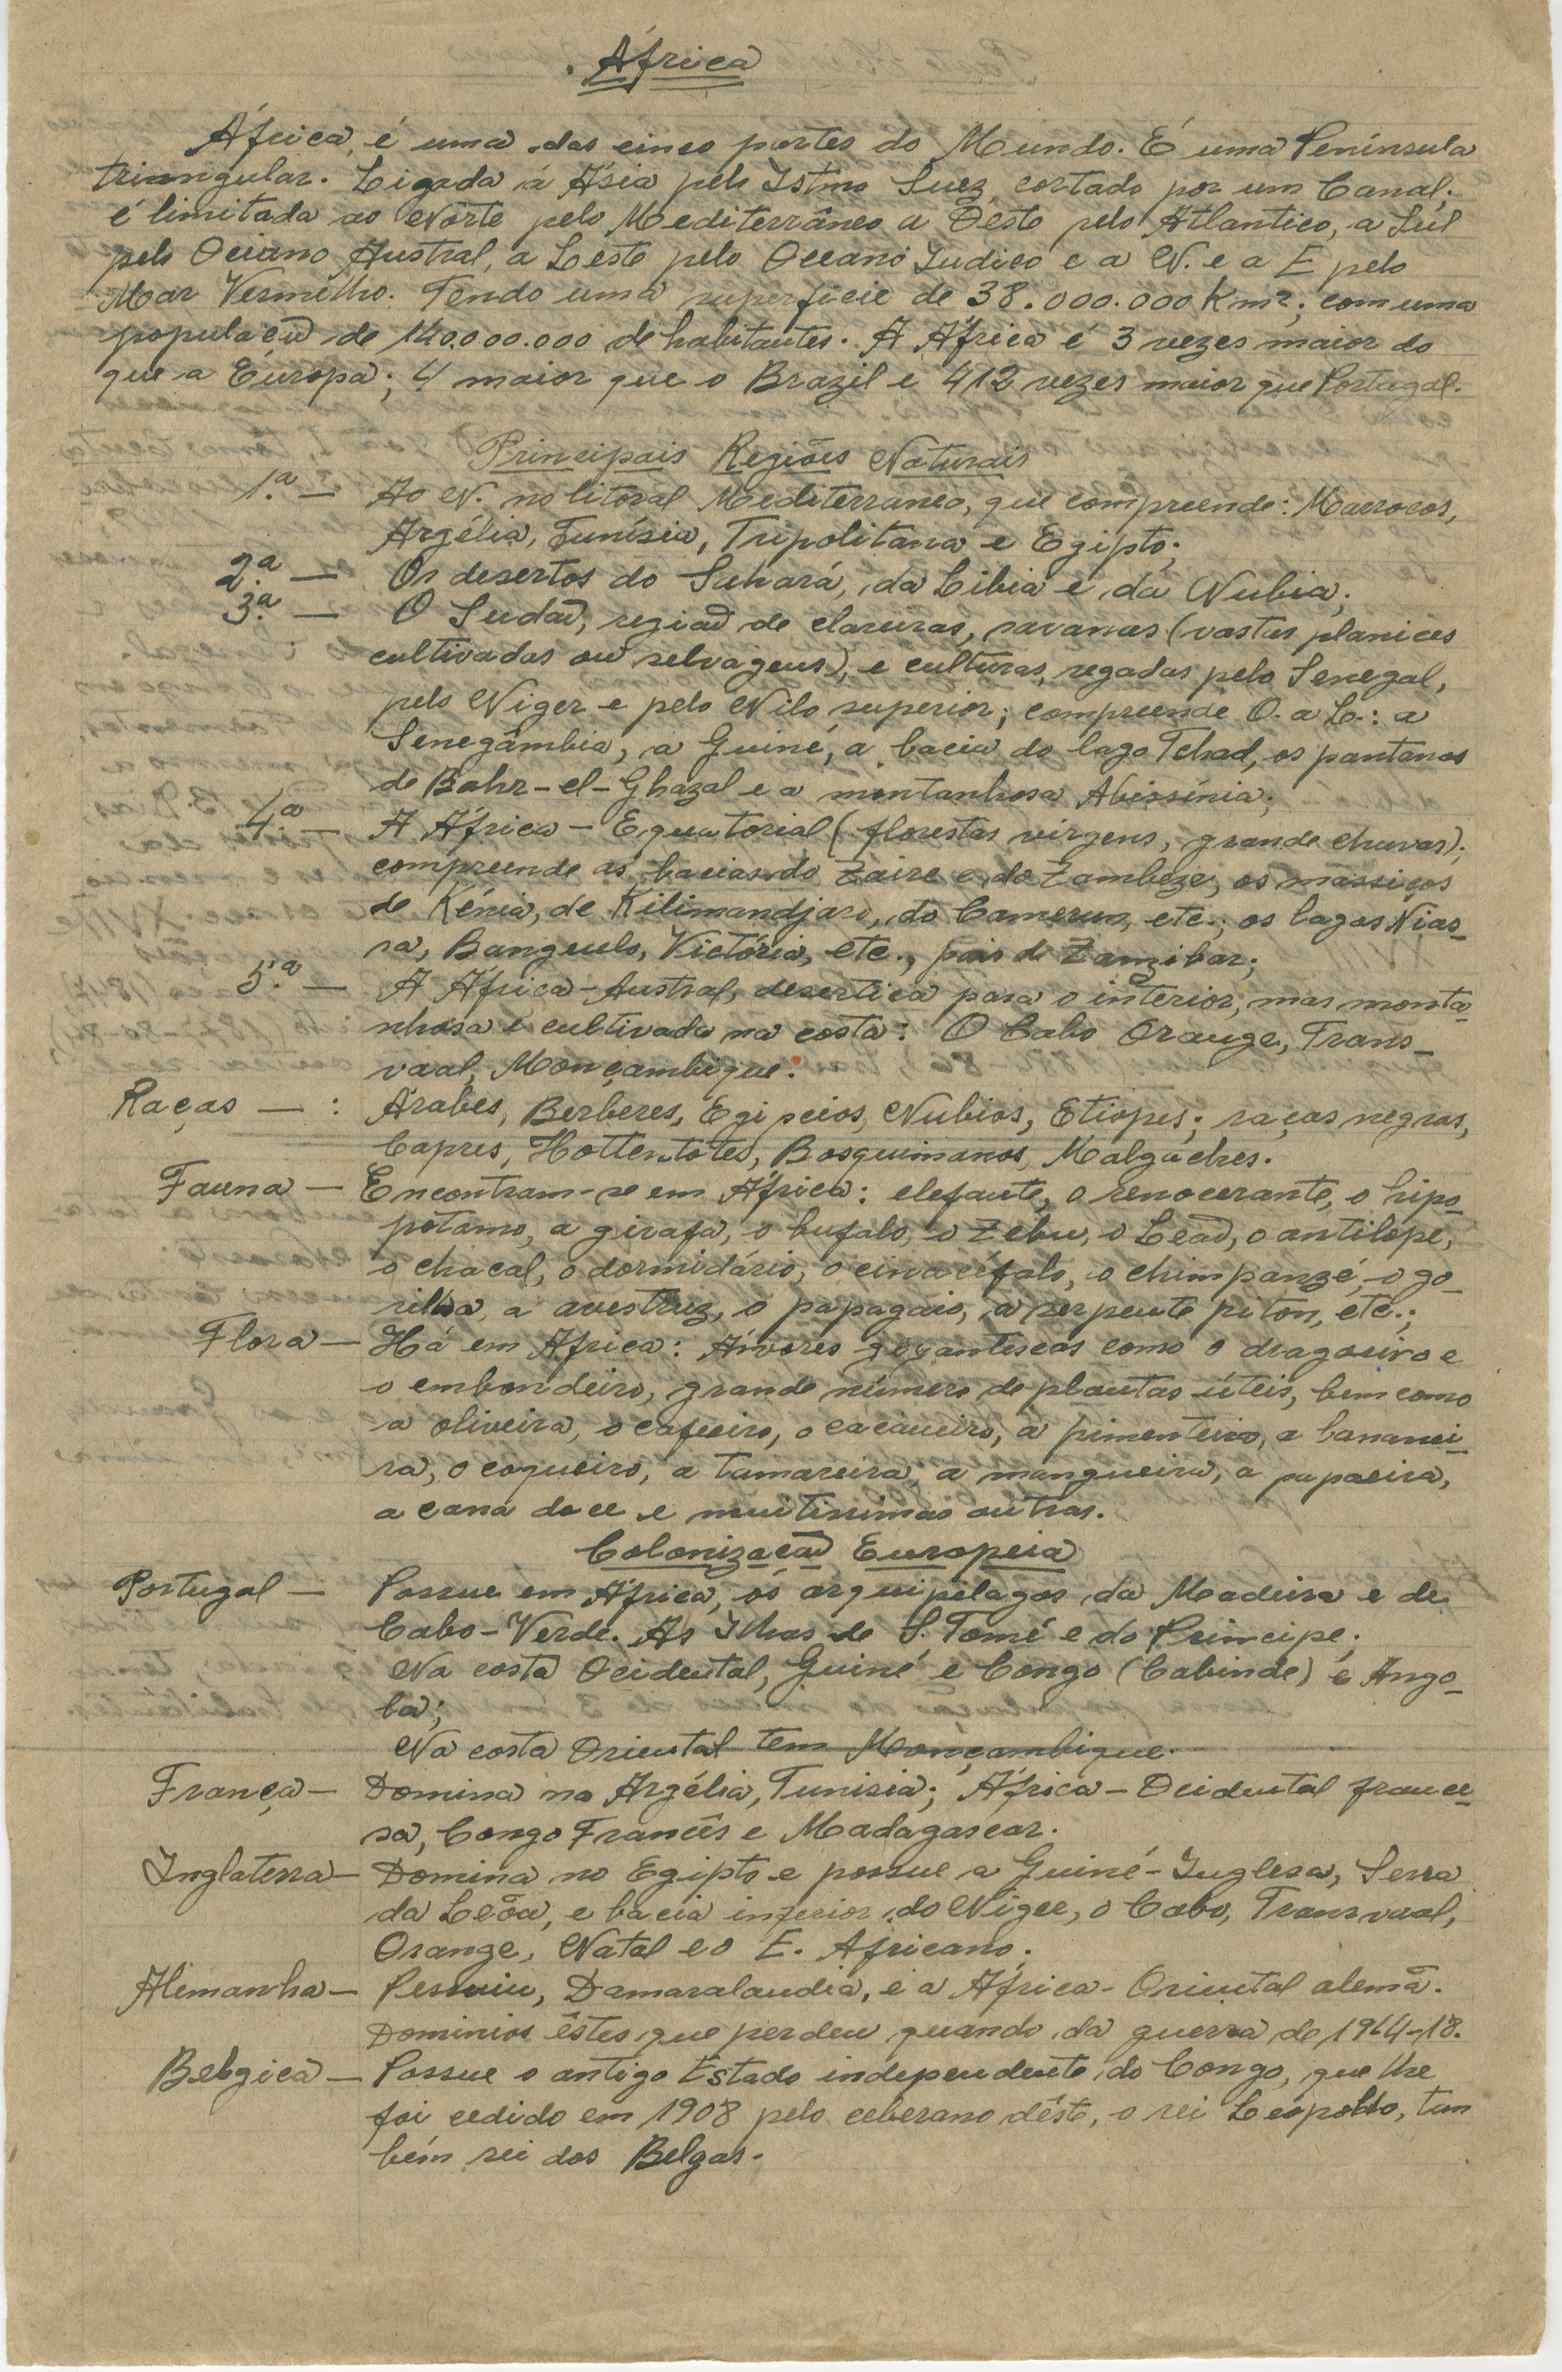 África
África, é uma das cinco partes do Mundo. É uma Península
triangular. Ligada á Ásia pelo Istmo Suez, cortado por um Canal;
é limitada ao Norte pelo Mediterrâneo a Oeste pelo Atlantico, a Sul
pelo Oceano Austral, a Leste pelo Oceano Indico e a N. e a E pelo
Mar Vermelho. Tendo uma superficie de 38.000.000 Km²; com uma
populacão de 140.000.000 de habitantes. A África é 3 vezes maior do
que a Európa; 4 maior que o Brazil e 412 vezes maior que Portugal.
Principais Regiões Naturais
1.ª — Ao N. no litoral Mediterraneo, que compreende: Marrocos,
Argélia, Tunísia, Tripolitana e Egipto;
2.ª — Os desertos do Sahará, da Libia e da Nubia;
3.ª — O Sudão, região de clareiras, savanas (vastas planices
cultivadas ou selvagens), e culturas, regadas pelo Senegal,
pelo Niger e pelo Nilo superior; compreende O. a L.: a
Senegâmbia, a Guiné, a bacia do lago Tchad, os pantanos
de Bahr-el-Ghazal e a montanhosa Abissínia;
4.ª — A África-Equatorial (florestas virgens, grande chuvas);
compreende as bacias do Zaire e do Zambeze, os massiços
de Kénia, de Kilimandjaro, do Camerun, etc.; os lagos Nias-
sa, Banguelo, Victória, etc., pais de Zanzibar;
5.ª — A África-Austral, desertica para o interior, mas monta-
nhosa e cultivada na costa: O Cabo Orange, Trans-
vaal, Monçambique.
Raças — : Árabes, Berberes, Egipcios, Nubios, Etiopes; raças negras,
Capres, Hottentotes, Bosquimanos, Malgaches.
Fauna — Encontram-se em África: elefante, o renocerante, o hipo-
pótamo, a girafa, o bufalo, o Zebu, o Leão, o antilope,
o chacal, o dormidário, o cinocéfalo, o chimpanzé, o go-
rilha, a avestruz, o papagaio, a serpente piton, etc.;
Flora — Há em África: Árvores gigantescas como o dragoeiro e
o embondeiro, grande número de plantas úteis, bem como
a oliveira, o cafeeiro, o cacaueiro, a pimenteira, a bananei-
ra, o coqueiro, a tamareira, a mangueira, a papaeira,
a cana doce e muitissimas outras.
Colonizacão Europeia
Portugal — Possue em África, os arquipelagos da Madeira e de
Cabo-Verde. As Ilhas de S. Tomé e do Principe;
Na costa Ocidental, Guiné e Congo (Cabinde) e Ango-
la;
Na costa Oriental tem Monçambique.
França — Domina na Argélia, Tunisia; África-Ocidental france-
sa, Congo Francês e Madagascar.
Inglaterra — Domina no Egipto e possue a Guiné-Inglesa, Serra
da Leôa, e bacia inferior do Niger, o Cabo, Transvaal,
Orange, Natal e o E. Africano;
Alemanha — Possuiu, Damaralandia, e a África-Oriental alemã.
Dominios êstes que perdeu quando da guerra de 1914-18.
Belgica — Possue o antigo Estado independente do Congo, que lhe
foi cedido em 1908 pelo ceberano dêste, o rei Leopoldo, tam
bém rei dos Belgas.